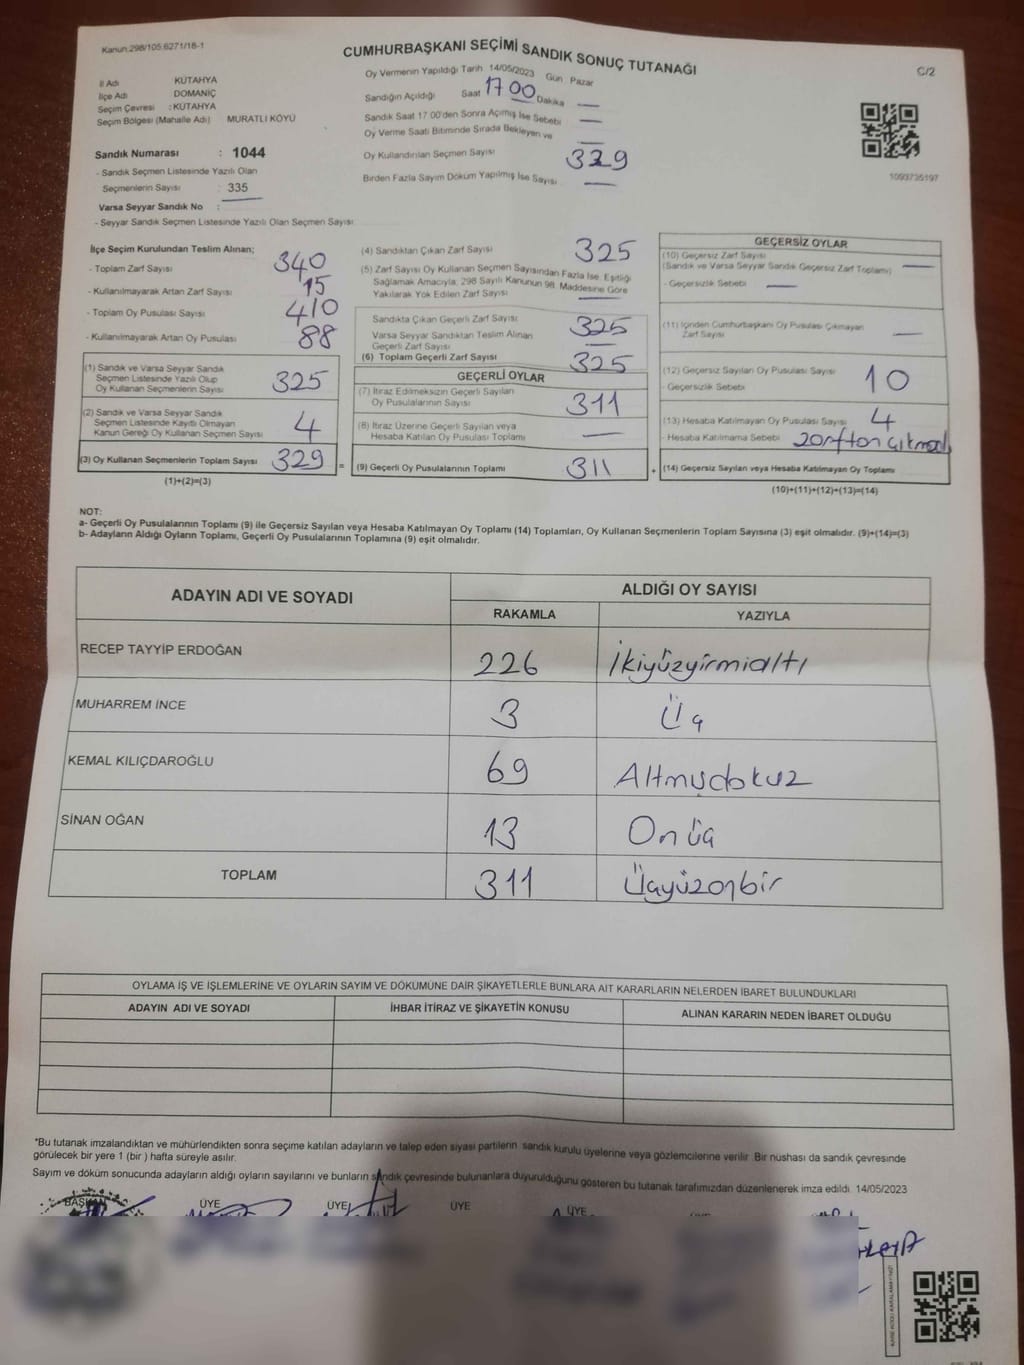 Kanun:298/105;6271/18-1
CUMHURBAŞKANI SEÇİMİ SANDIK SONUÇ TUTANAĞI
C/2
İl Adı KÜTAHYA
İlçe Adı DOMANİÇ
Seçim Çevresi : KÜTAHYA
Seçim Bölgesi (Mahalle Adı) MURATLI KÖYÜ
Oy Vermenin Yapıldığı Tarih 14/05/2023 Gün Pazar
Sandığın Açıldığı Saat 17 00 Dakika
Sandık Saat 17:00'den Sonra Açılmış İse Sebebi
Oy Verme Saati Bitiminde Sırada Bekleyen ve
Oy Kullandırılan Seçmen Sayısı 329
Birden Fazla Sayım Döküm Yapılmış İse Sayısı —
1093735197
Sandık Numarası : 1044
- Sandık Seçmen Listesinde Yazılı Olan
Seçmenlerin Sayısı : 335
Varsa Seyyar Sandık No :
- Seyyar Sandık Seçmen Listesinde Yazılı Olan Seçmen Sayısı
İlçe Seçim Kurulundan Teslim Alınan;
- Toplam Zarf Sayısı 340
- Kullanılmayarak Artan Zarf Sayısı 15
- Toplam Oy Pusulası Sayısı 410
- Kullanılmayarak Artan Oy Pusulası 88
(1) Sandık ve Varsa Seyyar Sandık
Seçmen Listesinde Yazılı Olup
Oy Kullanan Seçmenlerin Sayısı 325
(2) Sandık ve Varsa Seyyar Sandık
Seçmen Listesinde Kayıtlı Olmayan
Kanun Gereği Oy Kullanan Seçmen Sayısı 4
(3) Oy Kullanan Seçmenlerin Toplam Sayısı 329 =
(1)+(2)=(3)
(4) Sandıktan Çıkan Zarf Sayısı 325
(5) Zarf Sayısı Oy Kullanan Seçmen Sayısından Fazla İse, Eşitliği
Sağlamak Amacıyla, 298 Sayılı Kanunun 98. Maddesine Göre
Yakılarak Yok Edilen Zarf Sayısı —
Sandıkta Çıkan Geçerli Zarf Sayısı 325
Varsa Seyyar Sandıktan Teslim Alınan
Geçerli Zarf Sayısı —
(6) Toplam Geçerli Zarf Sayısı 325
GEÇERLİ OYLAR
(7) İtiraz Edilmeksizin Geçerli Sayılan
Oy Pusulalarının Sayısı 311
(8) İtiraz Üzerine Geçerli Sayılan veya
Hesaba Katılan Oy Pusulası Toplamı —
(9) Geçerli Oy Pusulalarının Toplamı 311 +
GEÇERSİZ OYLAR
(10) Geçersiz Zarf Sayısı
(Sandık ve Varsa Seyyar Sandık Geçersiz Zarf Toplamı) —
- Geçersizlik Sebebi —
(11) İçinden Cumhurbaşkanı Oy Pusulası Çıkmayan
Zarf Sayısı —
(12) Geçersiz Sayılan Oy Pusulası Sayısı 10
- Geçersizlik Sebebi
(13) Hesaba Katılmayan Oy Pusulası Sayısı 4
- Hesaba Katılmama Sebebi
(14) Geçersiz Sayılan veya Hesaba Katılmayan Oy Toplamı
(10)+(11)+(12)+(13)=(14)
NOT:
a- Geçerli Oy Pusulalarının Toplamı (9) ile Geçersiz Sayılan veya Hesaba Katılmayan Oy Toplamı (14) Toplamları, Oy Kullanan Seçmenlerin Toplam Sayısına (3) eşit olmalıdır. (9)+(14)=(3)
b- Adayların Aldığı Oyların Toplamı, Geçerli Oy Pusulalarının Toplamına (9) eşit olmalıdır.
ADAYIN ADI VE SOYADI
ALDIĞI OY SAYISI
RAKAMLA YAZIYLA
RECEP TAYYİP ERDOĞAN 226 İkiyüzyirmialtı
MUHARREM İNCE 3 Üç
KEMAL KILIÇDAROĞLU 69 Altmışdokuz
SİNAN OĞAN 13 On üç
TOPLAM 311 Üçyüzonbir
OYLAMA İŞ VE İŞLEMLERİNE VE OYLARIN SAYIM VE DÖKÜMÜNE DAİR ŞİKAYETLERLE BUNLARA AİT KARARLARIN NELERDEN İBARET BULUNDUKLARI
ADAYIN ADI VE SOYADI İHBAR İTİRAZ VE ŞİKAYETİN KONUSU ALINAN KARARIN NEDEN İBARET OLDUĞU
*Bu tutanak imzalandıktan ve mühürlendikten sonra seçime katılan adayların ve talep eden siyasi partilerin sandık kurulu üyelerine veya gözlemcilerine verilir. Bir nüshası da sandık çevresinde
görülecek bir yere 1 (bir) hafta süreyle asılır.
Sayım ve döküm sonucunda adayların aldığı oyların sayılarını ve bunların sandık çevresinde bulunanlara duyurulduğunu gösteren bu tutanak tarafımızdan düzenlenerek imza edildi. 14/05/2023
BAŞKAN ÜYE ÜYE ÜYE ÜYE